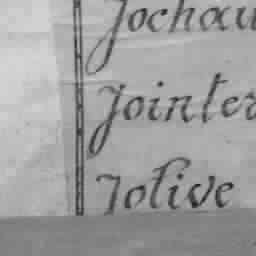 Jochau
Jointer
Jolive